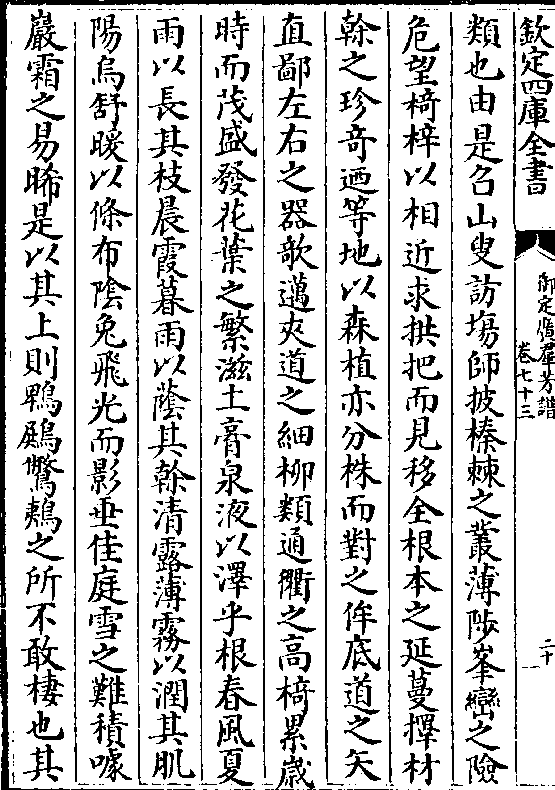 欽定四庫全書
御定廣羣芳譜
卷七十三
二十一
類也由是召山叟訪場師披榛棘之叢薄陟峯巒之險
危望椅梓以相近求拱把而見移全根本之延蔓擇材
榦之珍奇迺等地以森植亦分株而對之侔底道之矢
直鄙左右之器欹邁夾道之細柳類通衢之高椅累歲
時而茂盛發花葉之繁滋土膏泉液以澤乎根春風夏
雨以長其枝晨霞暮雨以蔭其榦清露薄霧以潤其肌
陽烏舒暖以條布陰兔飛光而影垂佳庭雪之難積噱
巖霜之易晞是以其上則鵯鶋鷩鴺之所不敢棲也其